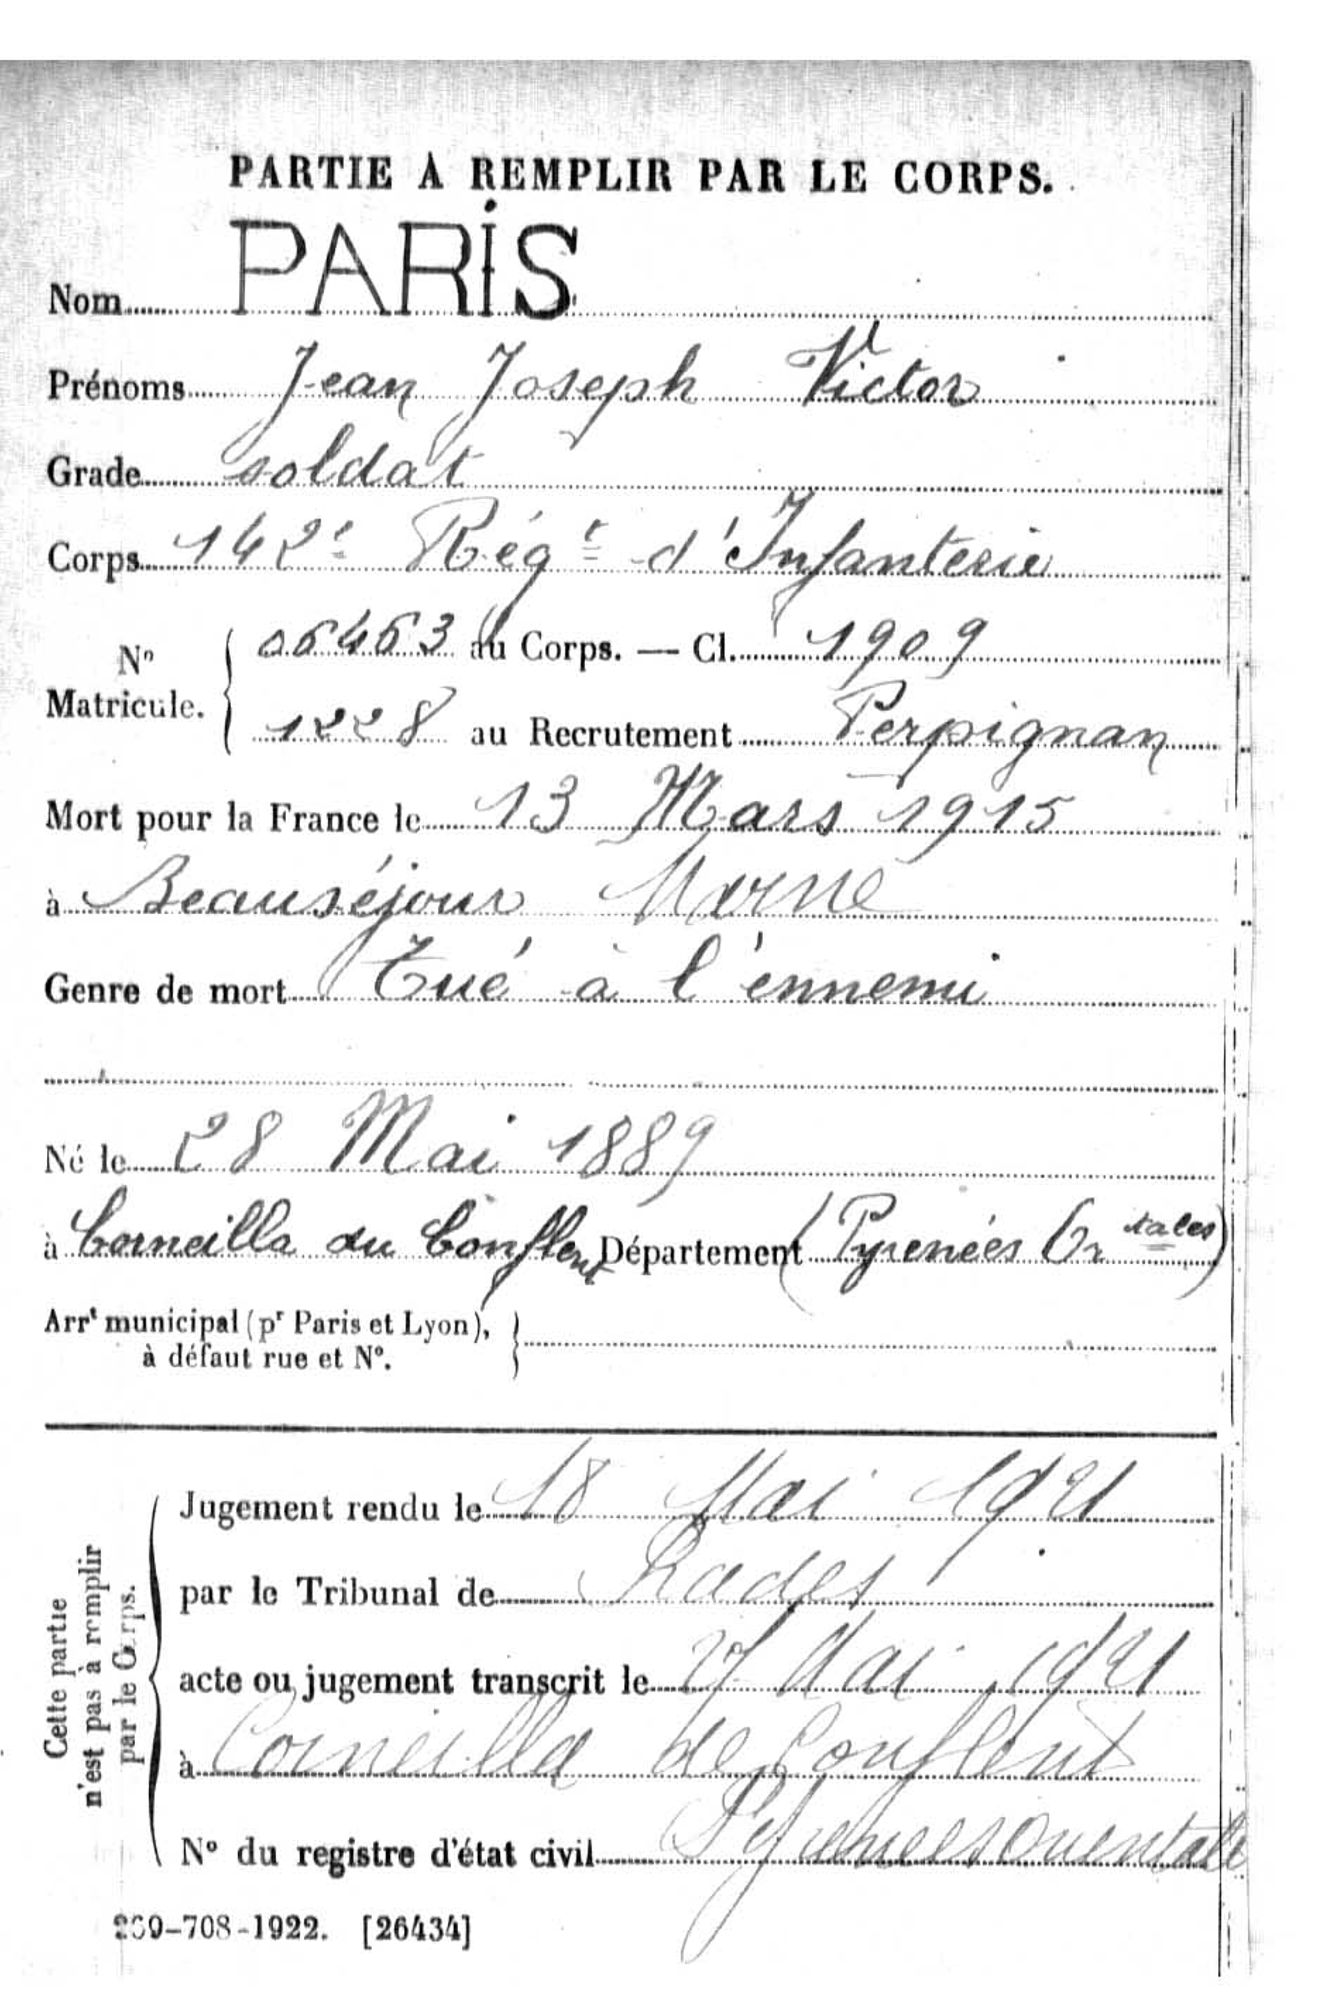 PARTIE À REMPLIR PAR LE CORPS.
Nom PARIS
Prénoms Jean Joseph Victor
Grade soldat
Corps 142e Régt d'Infanterie
No Matricule. { 06463 au Corps. — Cl. 1909
1228 au Recrutement Perpignan
Mort pour la France le 13 Mars 1915
à Beauséjour Marne
Genre de mort Tué à l'ennemi
Né le 28 Mai 1889
à Corneilla du Conflent Département (Pyrenées Or tales)
Arrt municipal (pr Paris et Lyon),
à défaut rue et No.
Cette partie
n'est pas à remplir
par le Corps.
Jugement rendu le 18 Mai 1921
par le Tribunal de Prades
acte ou jugement transcrit le 27 Mai 1921
à Corneilla de Conflent
No du registre d'état civil Pyrenees Orientales
-708-1922. [26434]